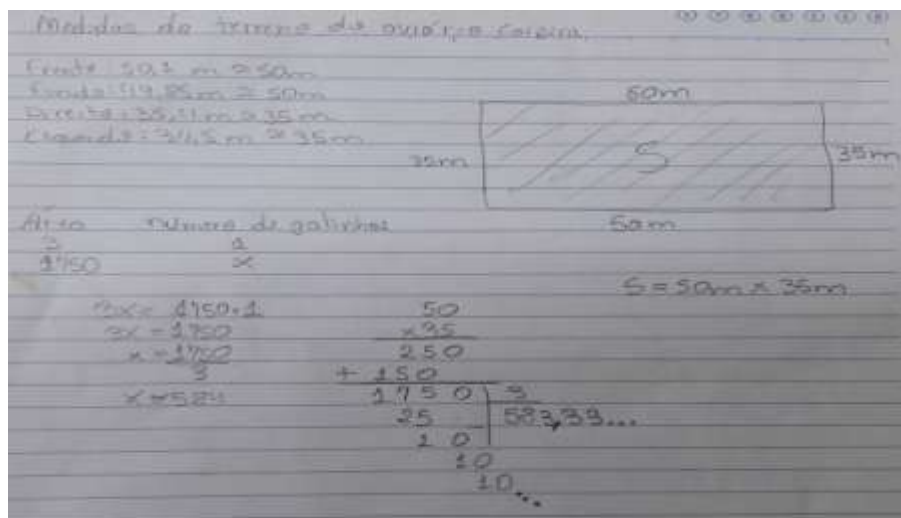 Medidas do terreno do aviário caipira.
Frente: 50,1 m ≅ 50m
Fundo: 49,85m ≅ 50m
Direita: 35,11 m ≅ 35m
Esquerda: 34,5 m ≅ 35m
50m
35m
S
35m
50m
Área número de galinhas
3 1
1750 x
S = 50m x 35m
3x = 1750.1
3x = 1750
x = 1750
3
x ≅ 584
50
x35
250
+ 150
1750 3
25 583,33...
10
10
10...